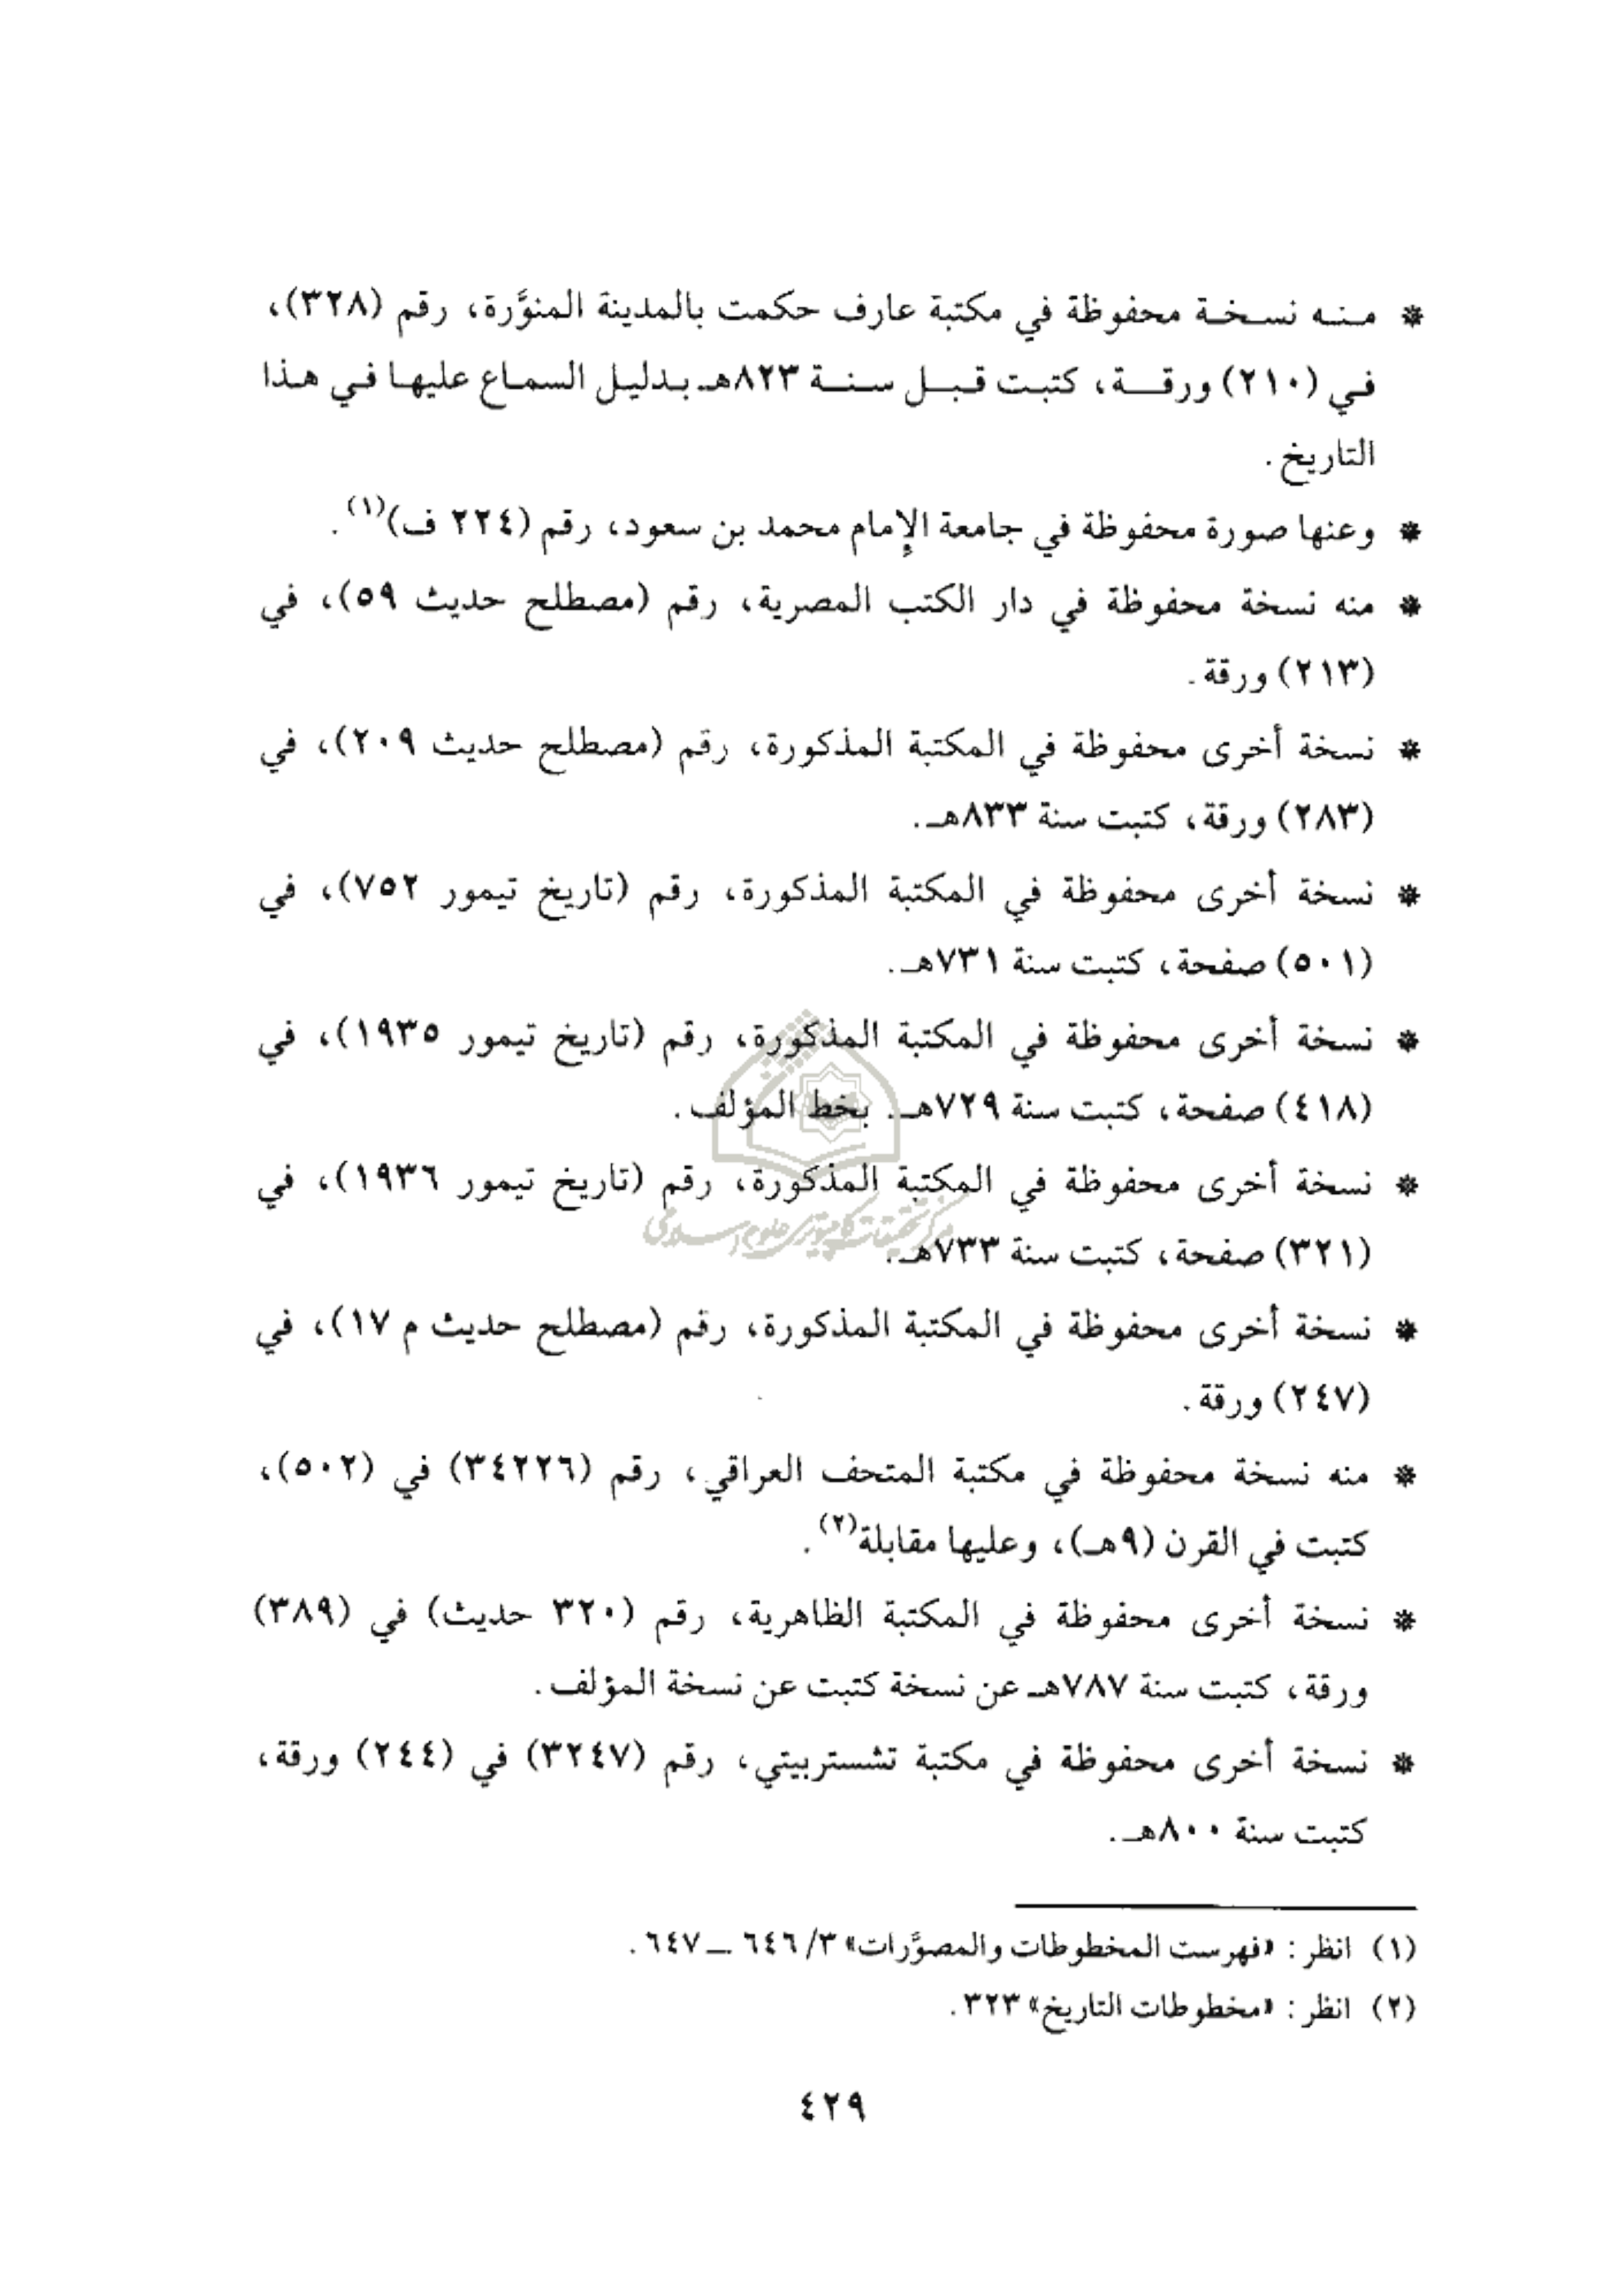 * منه نسخة محفوظة في مكتبة عارف حكمت بالمدينة المنوَّرة، رقم (٣٢٨)،
في (٢١٠) ورقة، كتبت قبل سنة ٨٢٣هـ بدليل السماع عليها في هذا
التاريخ.
* وعنها صورة محفوظة في جامعة الإمام محمد بن سعود، رقم (٢٢٤ ف)(١).
* منه نسخة محفوظة في دار الكتب المصرية، رقم (مصطلح حديث ٥٩)، في
(٢١٣) ورقة.
* نسخة أخرى محفوظة في المكتبة المذكورة، رقم (مصطلح حديث ٢٠٩)، في
(٢٨٣) ورقة، كتبت سنة ٨٣٣هـ.
* نسخة أخرى محفوظة في المكتبة المذكورة، رقم (تاريخ تيمور ٧٥٢)، في
(٥٠١) صفحة، كتبت سنة ٧٣١هـ.
* نسخة أخرى محفوظة في المكتبة المذكورة، رقم (تاريخ تيمور ١٩٣٥)، في
(٤١٨) صفحة، كتبت سنة ٧٢٩هـ. بخط المؤلف.
* نسخة أخرى محفوظة في المكتبة المذكورة، رقم (تاريخ تيمور ١٩٣٦)، في
مرکز تحقیقات کامپیوتری علوم اسلامی
(٣٢١) صفحة، كتبت سنة ٧٣٣هـ.
* نسخة أخرى محفوظة في المكتبة المذكورة، رقم (مصطلح حديث م ١٧)، في
(٢٤٧) ورقة.
* منه نسخة محفوظة في مكتبة المتحف العراقي، رقم (٣٤٢٢٦) في (٥٠٢)،
كتبت في القرن (٩هـ)، وعليها مقابلة(٢).
* نسخة أخرى محفوظة في المكتبة الظاهرية، رقم (٣٢٠ حديث) في (٣٨٩)
ورقة، كتبت سنة ٧٨٧هـ عن نسخة كتبت عن نسخة المؤلف.
* نسخة أخرى محفوظة في مكتبة تشستربيتي، رقم (٣٢٤٧) في (٢٤٤) ورقة،
كتبت سنة ٨٠٠هـ.
(١) انظر: «فهرست المخطوطات والمصوَّرات» ٣/ ٦٤٦ ــ ٦٤٧.
(٢) انظر: «مخطوطات التاريخ» ٣٢٣.
٤٢٩